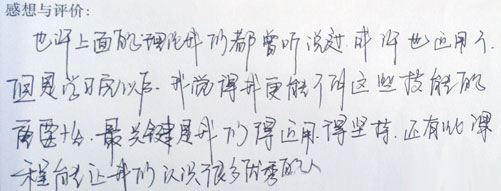 感想与评价:
也许上面的理论我们都曾听说过,或许也运用了.
但是学习完以后.我觉得我更能了解这些技能的
重要性.最关键是我们得运用.得坚持.还有此课
程能让我们认识很多优秀的人